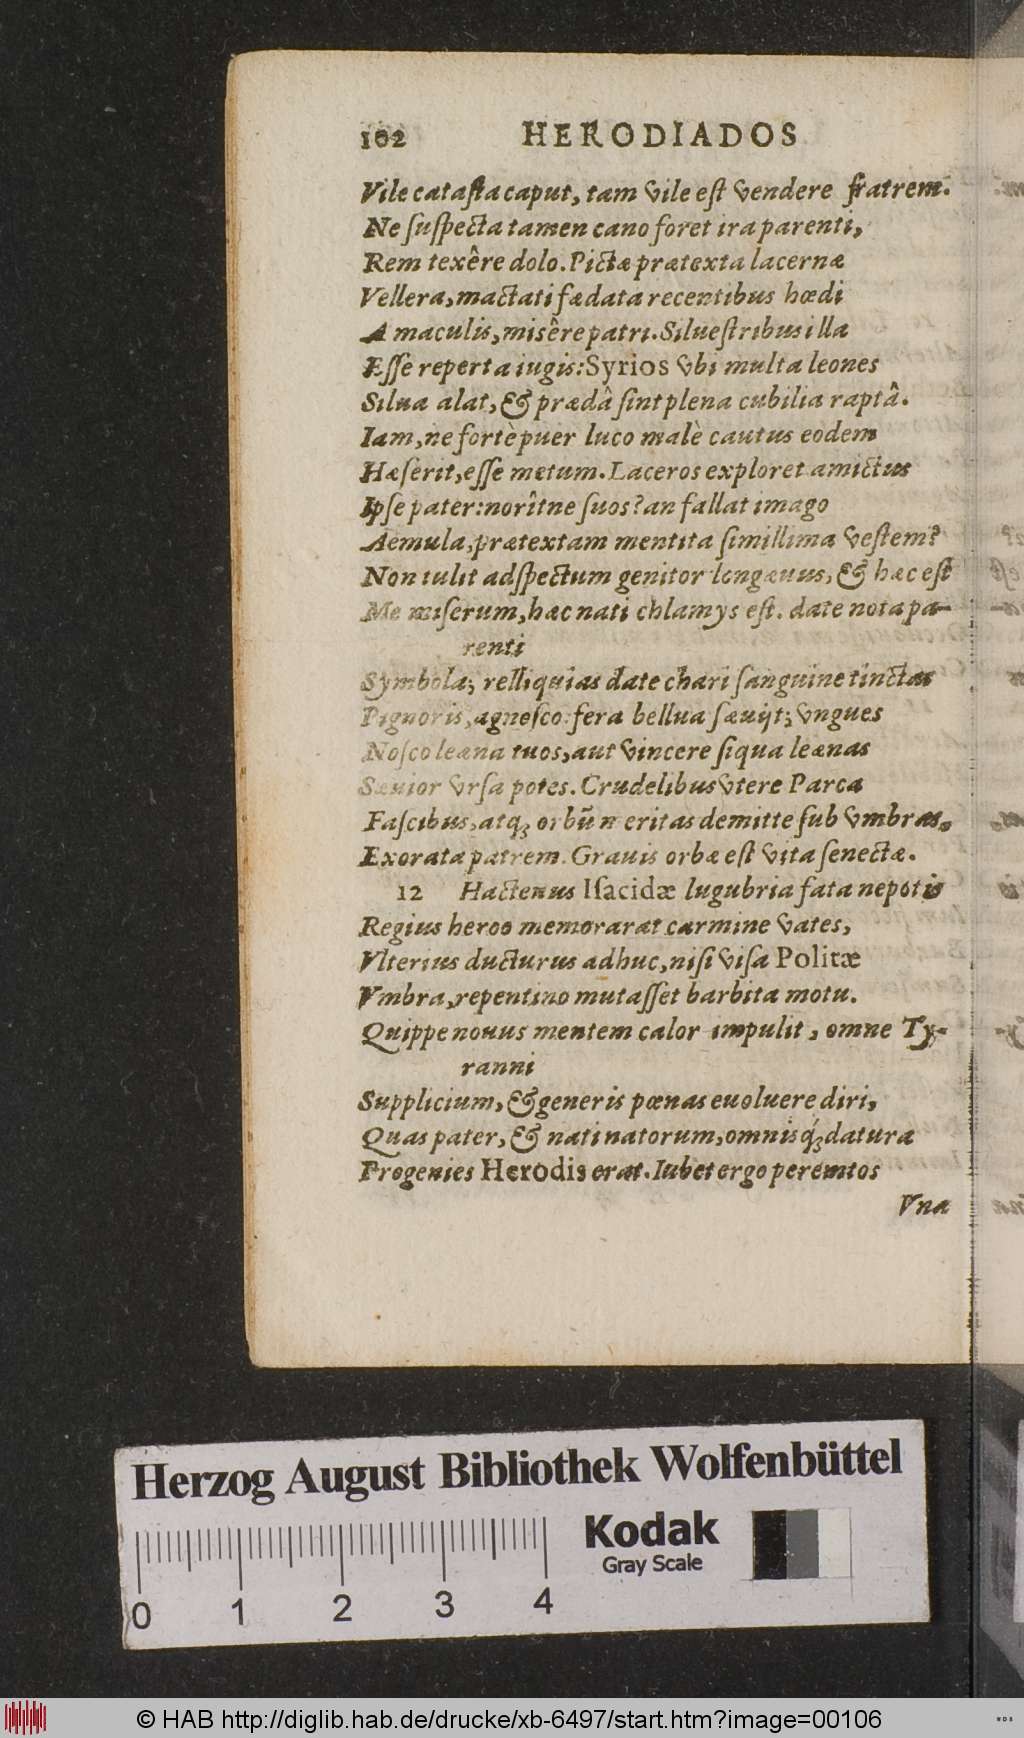 102 HERODIADOS
Vile catasta caput, tam vile est vendere fratrem.
Ne suspecta tamen cano foret ira parenti,
Rem texêre dolo. Pictæ prætexta lacernæ
Vellera, mactati fædata recentibus hœdi
A maculis, misêre patri. Siluestribus illa
Esse reperta iugis: Syrios vbi multa leones
Silua alat, & prædâ sint plena cubilia raptâ.
Iam, ne fortè puer luco malè cautus eodem
Hæserit, esse metum. Laceros exploret amictus
Ipse pater: norîtne suos? an fallat imago
Aemula, prætextam mentita simillima vestem?
Non tulit adspectum genitor longæuus, & hæc est
Me miserum, hæc nati chlamys est. date nota pa-
renti
Symbola; relliquias date chari sanguine tinctas
Pignoris, agnosco: fera bellua sæuijt; vngues
Nosco leæna tuos, aut vincere siqua leænas
Sæuior vrsa potes. Crudelibus vtere Parca
Fascibus, atq; orbũ n eritas demitte sub vmbras.
Exorata patrem. Grauis orbæ est vita senectæ.
12 Hactenus Isacidæ lugubria fata nepotis
Regius heroo memorarat carmine vates,
Vlterius ducturus adhuc, nisi visa Politæ
Vmbra, repentino mutasset barbita motu.
Quippe nouus mentem calor impulit, omne Ty-
ranni
Supplicium, & generis pœnas euoluere diri,
Quas pater, & nati natorum, omnisq́; datura
Progenies Herodis erat. Iubet ergo peremtos
Vna
Herzog August Bibliothek Wolfenbüttel
Kodak
Gray Scale
0 1 2 3 4
© HAB http://diglib.hab.de/drucke/xb-6497/start.htm?image=00106